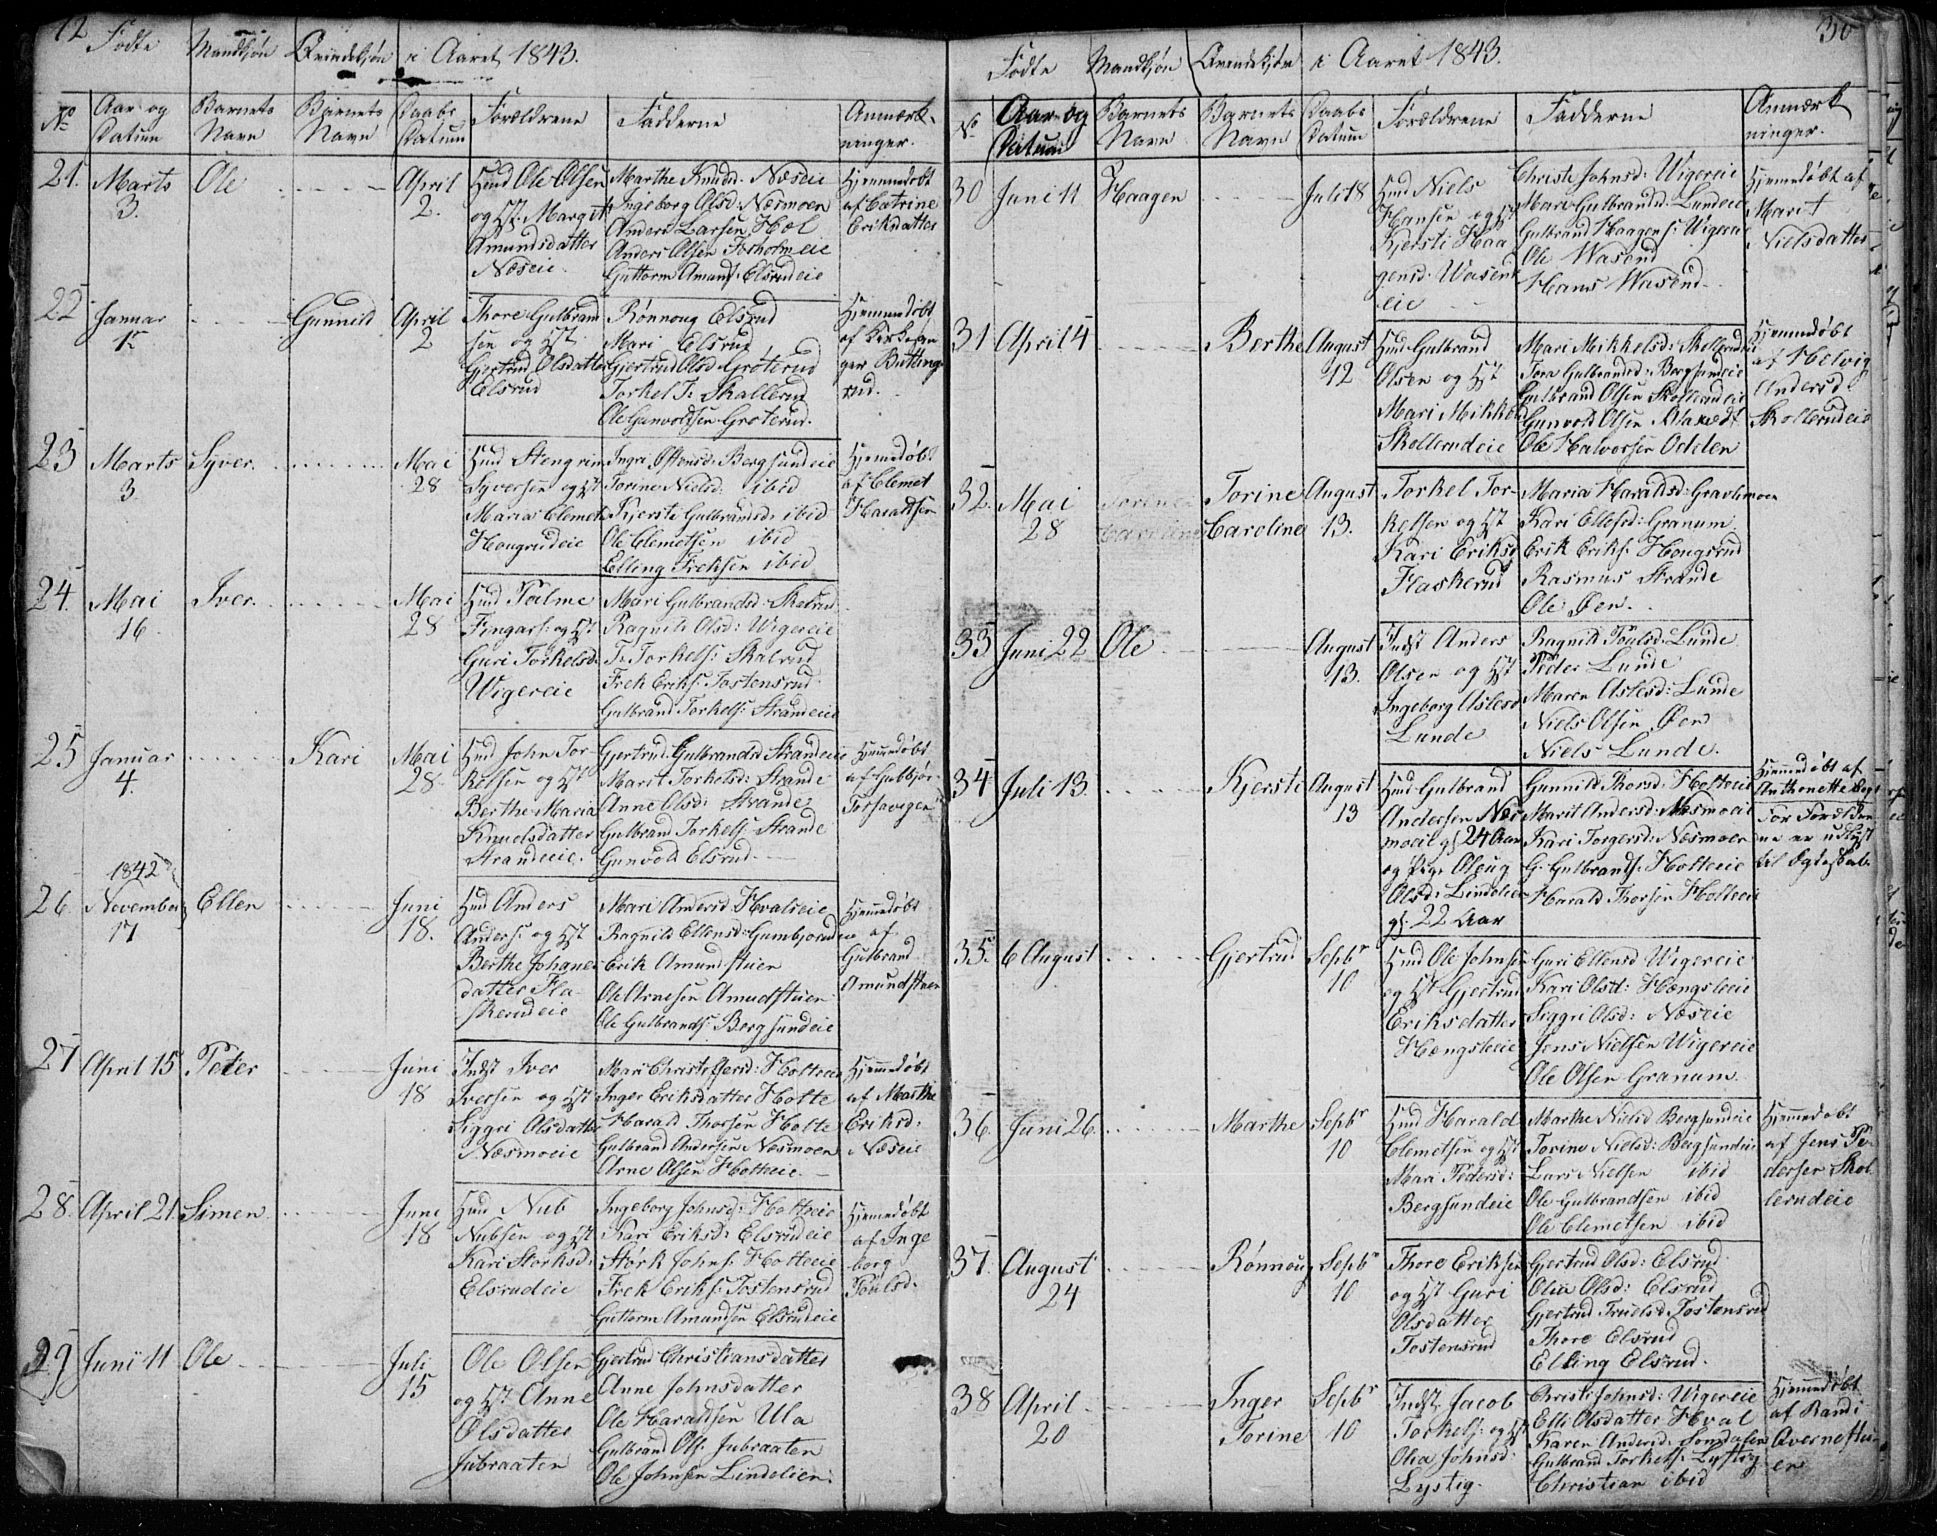 12 Fødte Mandkjøn Qvindekjøn i Aaret 1843.
No Aar og Datum Barnets Navn Barnets Navn Daabs Datum Forældrene Fadderne Anmærkninger.
21. Marts 3. Ole April 2.
Hmd Ole Olsen
og Hst. Margit
Amundsdatter
Næseie.
Marthe Knudsd. Næseie
Ingeborg Olsd. Næsmoen
Anders Larsen Hol
Anders Olsen
Guttorm Amunds: Elsrudeie
Hjemmedøbt
af Catrine
Eriksdatter
22 Januar 1. Gunnild April 2
Thore Gulbrand
sen og Hst.
Gjertrud Olsdatter
Elsrud
Rønnoug Elsrud
Mari Elsrud
Gjertrud Olsd. Grøterud
Torkel T. Skallerud
Ole Gunvoldsen Grøterud.
Hjemmedøbt
af Kirkesan
ger Buttinge
rud.
23 Marts 3 Syver. Mai 28
Hmd Stengrim
Syversen og Hst
Maria Clemets
Hougrudeie
Ingri Ostensd. Bergsundeie
Torine Nielsd. ibid
Kjersti Gulbrandsd. ibid
Ole Clemetsen ibid
Elling Freksen ibid
Hjemedøbt
af Clemet
Haraldsen
24. Mai 16. Iver. Mai 28
Hmd Palme
Fingars. og Hst
Guri Torkelsd.
Wigereie
Mari Gulbrandsd. Skalrud
Ragnild Olsd: Wigereie
T. Torkels: Skalrud
Frek Eriks. Tostensrud
Gulbrand Torkels: Strandeie
25 Januar 4. Kari Mai 28.
Hmd John Tor-
kelsen og Hst
Berthe Maria
Knudsdatter
Strandeie.
Gjertrud Gulbrandsd Strandeie
Marit Torkelsd: Strande
Anne Olsd: Strande
Gulbrand Torkels. Strande
Gunvold Elsrud.
Hjemmedøbt
af Gubbjør
26. 1842 November 17 Ellen Juni 18.
Hmd Anders
Anders: og Hst
Berthe Johanes
datter Fla-
skerudeie
Mari Andersd Hvalseie
Ragnild Ellensd: Gumbjørud
Erik Amundstuen
Ole Arnesen Amudstuen
Ole Gulbrands. Bergsundeie
Hjemmedøbt
af
Gulbrand
Amundstuen
27 April 15 Peter Juni 18
Indst Iver
Iversen og Hst
Siggri Olsdatter
Næsmoeie
Mari Christophersd: Holteeie
Inger Eriksdatter Holte
Harald Thorsen Holte
Gulbrand Andersen Næsmoen
Arne Olsen Holteeie.
Hjemmedøbt
af Marthe
Eriksd:
Næseie
28. April 21 Simen June 18
Hmd Nub
Nubsen og Hst
Kari Størksd.
Elsrudeie
Ingeborg Johnsd: Holteeie
Kari Eriksd: Elsrudeie
Størk Johns: Holteeie
Frek Eriks: Tostensrud
Guttorm Amundsen Elsrudeie
Hjemmedøbt
af Inge
borg
Poulsd.
29 Juni 11 Ole Juli 15
Ole Olsen
og Hst. Anne
Olsdatter
Jubraaten
Gjertrud Christiansdatter
Anne Johnsdatter
Ole Haraldsen Ula
Gulbrand Ols. Jubraaten
Ole Johnsen Lindelien.
30
Fødte Mandkjøn Qvindekjøn i Aaret 1843.
No Aar og Datum Barnets Navn Barnets Navn Daabs Datum Forældrene Fadderne Anmærkninger.
30 Juni 11 Haagen Juli 18
Hmd Niels
Hansen og Hst
Kjersti Haa
gensd. Wasend
eie
Christi Johnsd: Wigereie
Mari Gulbrandsd. Lundeie
Gulbrand Haagens: Wigerei
Ole Wasend
Hans Wasend
Hjemmedøbt af
Marit
Nielsdatter
31 April 4 Berthe August 12
Hmd Gulbrand
Olsen og Hst
Mari Mikkelsd
Skollerudeie
Mari Mikkelsd: Skollerudeie
Tora Gulbrandsd: Bergsundeie
Gulbrand Olsen Skollerudeie
Gunvold Olsen
Ole Halvorsen Oddelen
Hjemmedøbt
af Helvig
Andersd.
Skollerudeie
32. Mai 28 Torine Caroline August 13.
Torkel Tor-
kelsen og Hst
Kari Eriksd
Flaskerud
Maria Haraldsd: Gravlimoen
Kari Ellefsd: Granum
Erik Eriks. Hougsrud
Rasmus Strande
Ole Øen.
33 Juni 22 Ole August 13.
Indst Anders
Olsen og Hst
Ingeborg Aslesd
Lunde
Ragnild Poulsd. Lunde
Peder Lunde
Maren Aslesd: Lunde
Niels Olsen Øen
Niels Lunde.
34 Juli 13 Kjersti August 13
Hmd Gulbrand
Andersen Næs
moeie gl 24 Aar
og Pige Oleug
Olsd: Lindelien
gl. 22 Aar
Gunnild Thorsd. Holteeie
Marit Andersd. Næsmoeie
Kari Torgersd. Næsmoen
G. Gulbrands: Holteeie
Harald Thorsen Holteeie
Hjemmedøbt af
Anthonette
For Forældre
ne er udlyst
til Ægteskab
35. 6 August Gjertrud Sepbr 10
Hmd Ole Johnsen
og Hst Gjertrud
Eriksdatter
Hængsleeie
Guri Ellensd Wigereie
Kari Olsd: Hængsleeie
Siggri Olsd: Næseie
Jens Nielsen Wigereie
Ole Olsen Granum.
36. Juni 26 Marthe Sepbr 10
Hmd Harald
Clemetsen og Hst
Mari Pedersd:
Bergsundeie
Marthe Nielsd Bergsundeie
Torine Nielsd: Bergsundeie
Lars Nielsen ibid
Ole Gulbrandsen ibid
Ole Clemetsen ibid
Hjemmedøbt
af Jens Pe-
dersen Skol
lerudeie
37. August 24 Rønnoug Sepbr 10
Thore Eriksen
og Hst Guri
Olsdatter
Tostensrud
Gjertrud Olsd: Elsrud
Olia Olsd: Elsrud
Gjertrud Truelsd. Tostensrud
Thore Elsrud
Elling Elsrud.
38 April 20 Inger Torine Sepbr 10
Indst Jacob
Torkels: og Hst
Olia Johnsd
Lystig.
Christi Johnsd: Wigereie
Elli Olsdatter Hval
Karen Andersd.
Gulbrand Torkels: Lystig
Christian ibid
Hjemmedøbt
af Randi